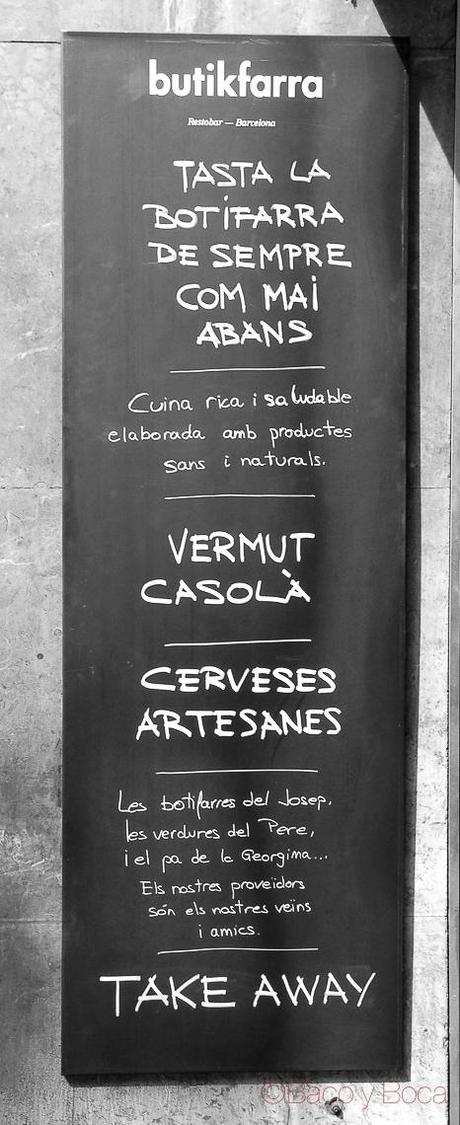 butikfarra
Restobar — Barcelona
TASTA LA
BOTIFARRA
DE SEMPRE
COM MAI
ABANS
Cuina rica i saludable
elaborada amb productes
sans i naturals.
VERMUT
CASOLÀ
CERVESES
ARTESANES
Les botifarres del Josep,
les verdures del Pere,
i el pa de la Georgina...
Els nostres proveïdors
són els nostres veïns
i amics.
TAKE AWAY
©Baco y Boca